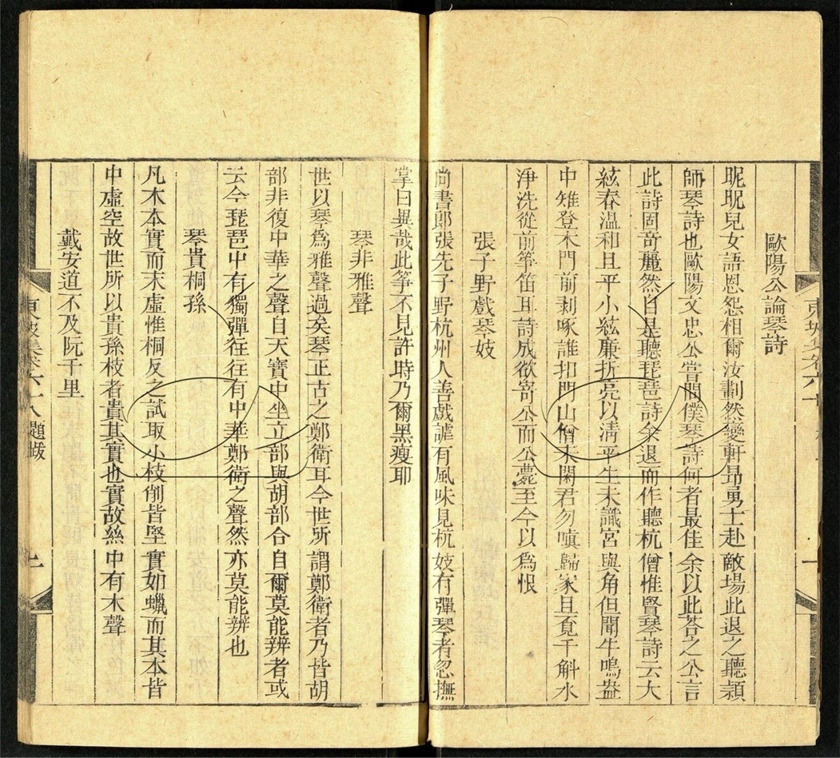 歐陽公論琴詩
昵昵兒女語恩怨相爾汝劃然變軒昻勇士赴敵場此退之聽頴
師琴詩也歐陽文忠公嘗問僕琴詩何者最佳余以此荅之公言
此詩固竒麗然自是聽琵琶詩余退而作聽杭僧惟賢琴詩云大
絃春温和且平小絃廉折亮以清平生未識宮與角但聞牛鳴盎
中雉登木門前剥啄誰扣門山僧未閑君勿嗔歸家且覓千斛水
淨洗從前筝笛耳詩成欲寄公而公薨至今以爲恨
張子野戲琴妓
尚書郎張先子野杭州人善戲謔有風味見杭妓有彈琴者忽撫
掌曰異哉此筝不見許時乃爾黑瘦耶
琴非雅聲
世以琴爲雅聲過矣琴正古之鄭衛耳今世所謂鄭衛者乃皆胡
部非復中華之聲自天寶中坐立部與胡部合自爾莫能辨者或
云今琵琶中有獨彈往往有中華鄭衛之聲然亦莫能辨也
琴貴桐孫
凡木本實而末虛惟桐反之試取小枝削皆堅實如蠟而其本皆
中虛空故世所以貴孫枝者貴其實也實故絲中有木聲
戴安道不及阮千里
東坡集卷六十八題跋